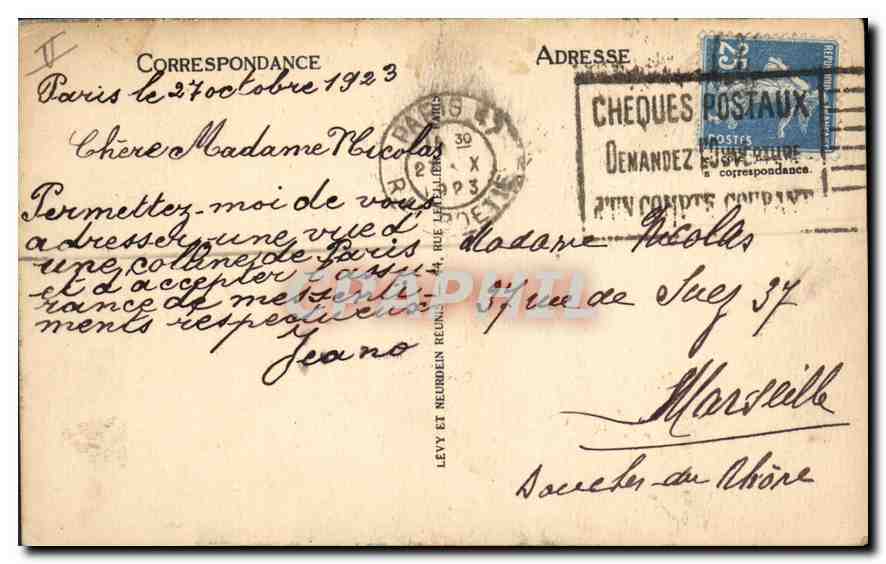 II
CORRESPONDANCE
Paris le 27 octobre 1923
Chère Madame Nicolas
Permettez-moi de vous
adresser une vue d'
une colline de Paris
et d'accepter l'assu-
rance de mes senti-
ments respectueux
Jeano
LÉVY ET NEURDEIN RÉUNIS, 44, RUE LETELLIER, PARIS
ADRESSE
PARIS 47
30
X
CHEQUES POSTAUX
DEMANDEZ L'OUVERTURE
D'UN COMPTE COURANT
25
POSTES
correspondance.
Madame Nicolas
37 rue de Suez 37
Marseille
Bouches-du-Rhône
CPAPHIL